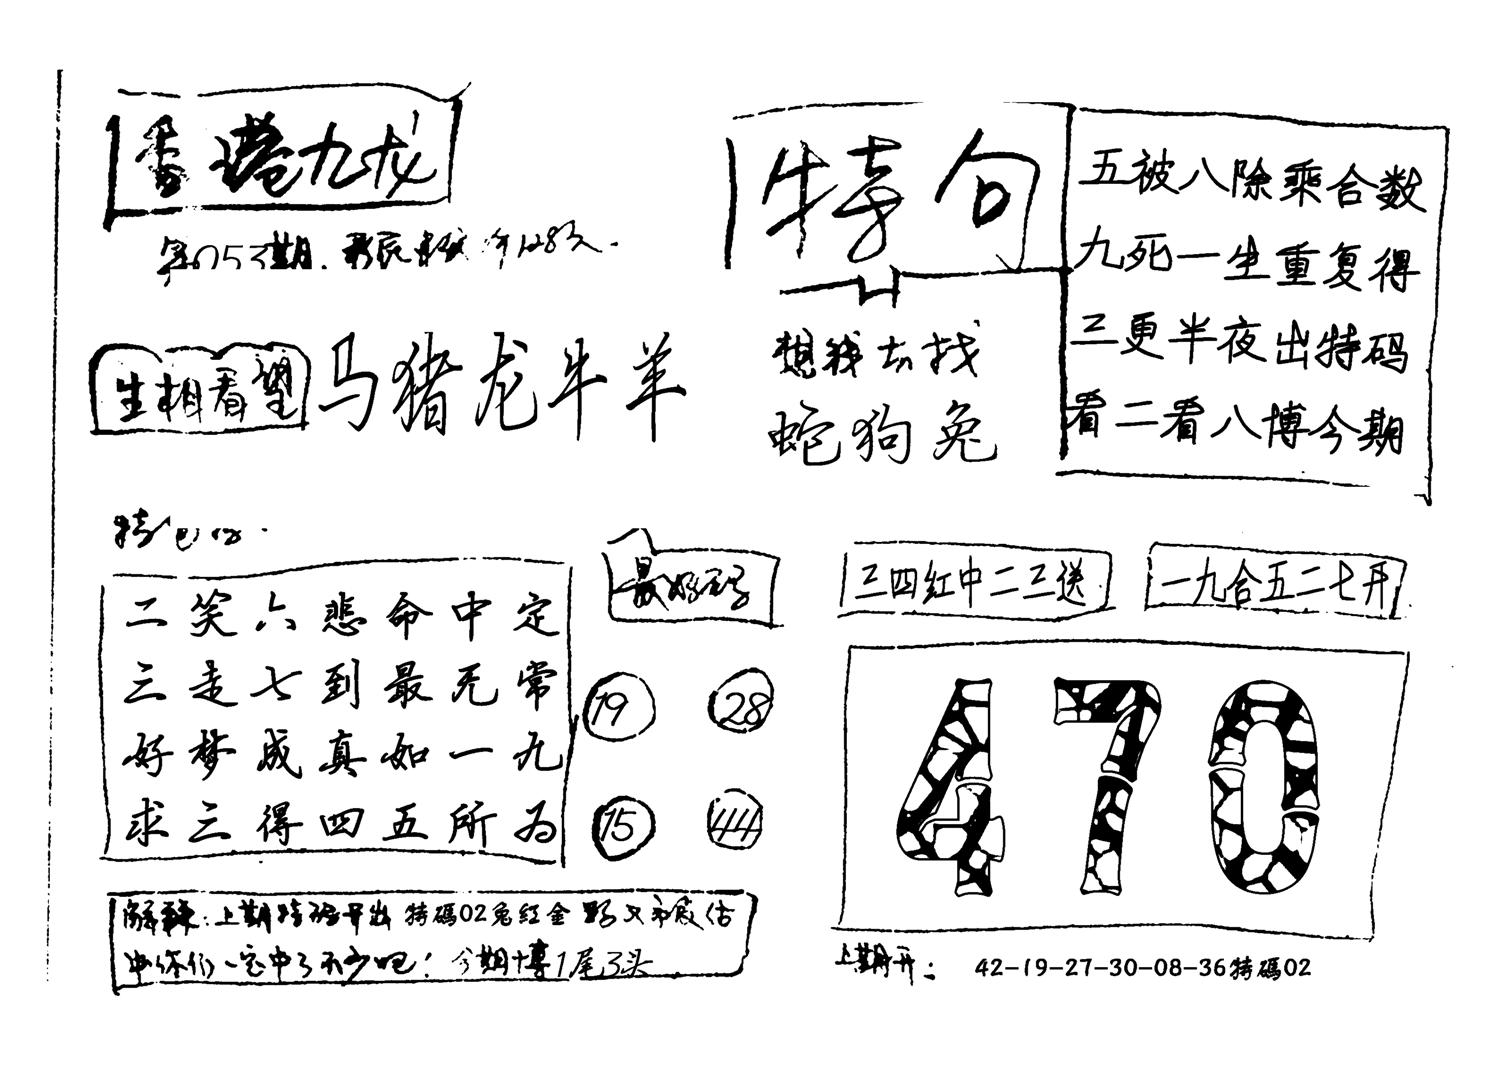 香港九龙
第053期.
特句
五被八除乘合数
九死一生重复得
三更半夜出特码
看二看八博今期
想我去找
蛇狗兔
生相看望
马猪龙牛羊
二笑六悲命中定
三走七到最无常
好梦成真如一九
求三得四五所为
最好码
19 28
15 44
三四红中二三送
一九合五二七开
470
解釋:上期特码开出 特碼02兔红金
你们一定中了不少吧! 今期十博1尾3头
上期开: 42-19-27-30-08-36特碼02